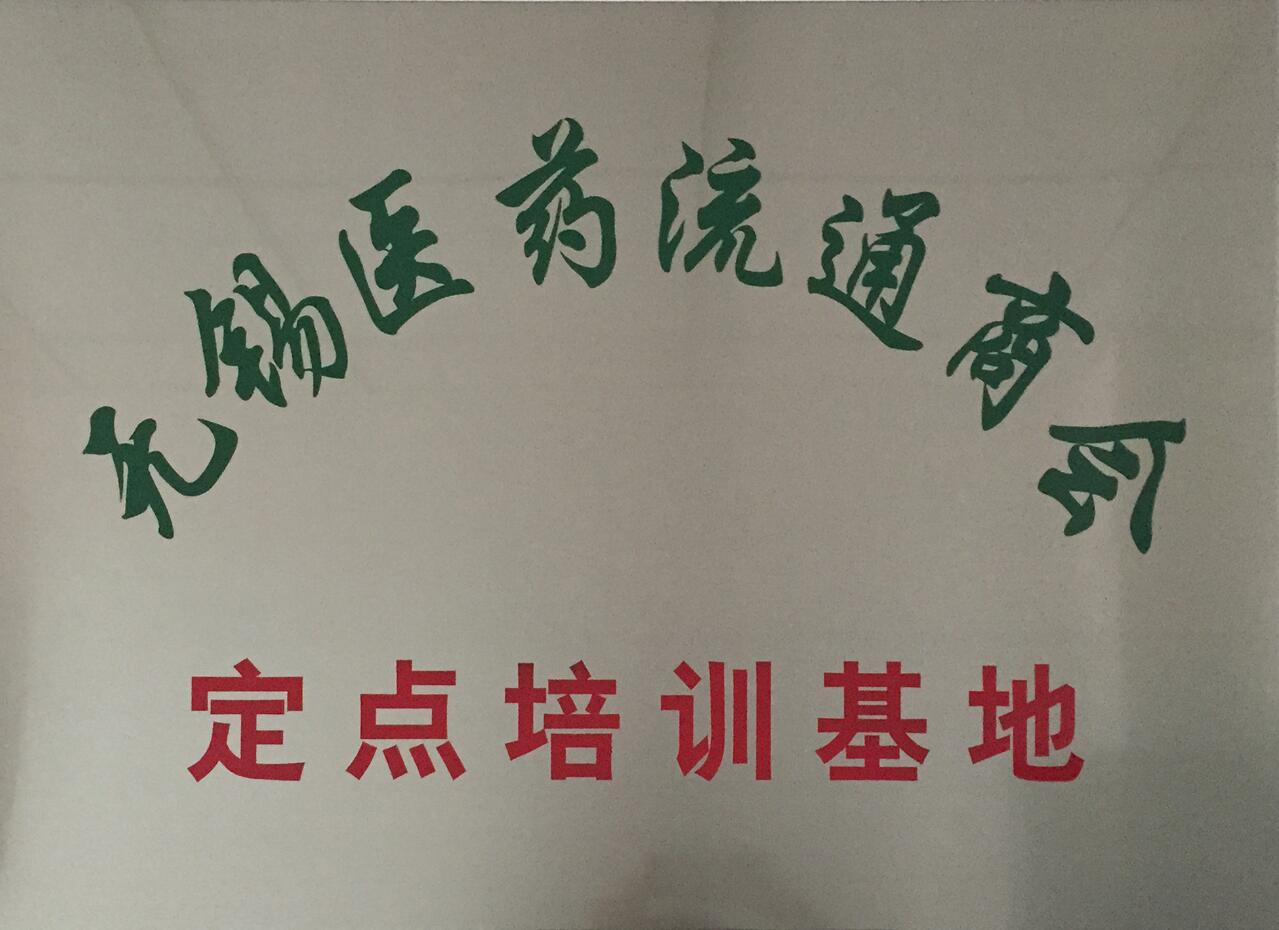 无锡医药流通商会
定点培训基地